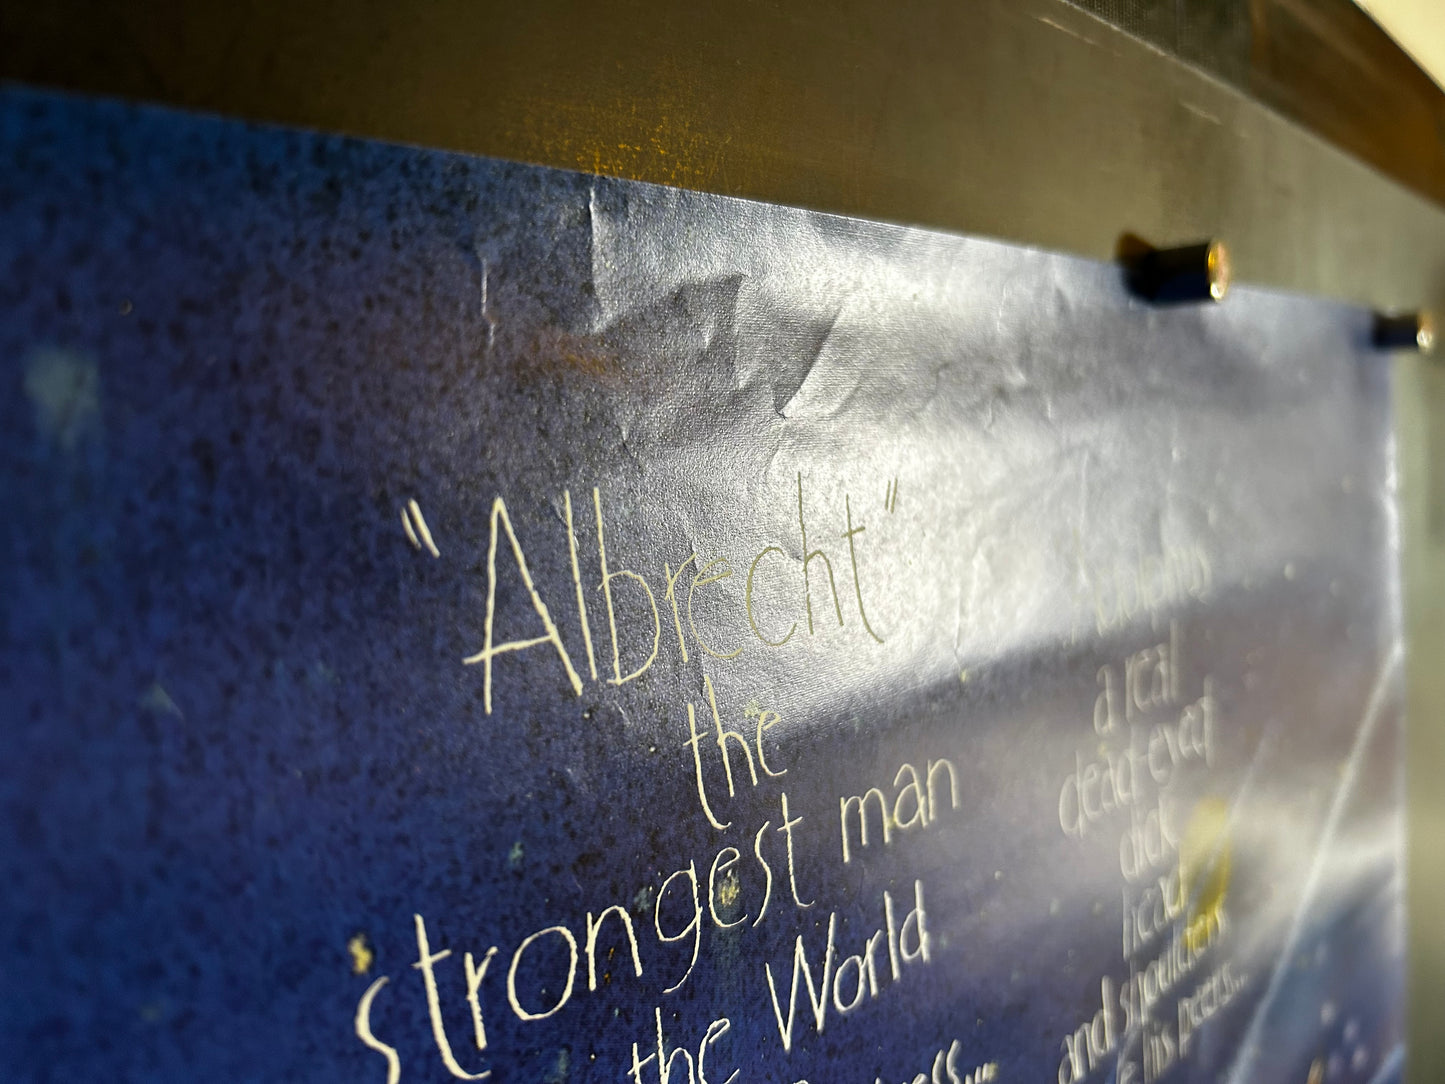 "Albrecht"
the
strongest man
the World
a real
dead-beat
dick
head
and
his peers...